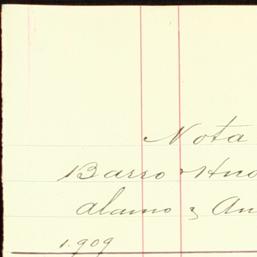 Nota
Barro & Hno
Alamo y An
1.909